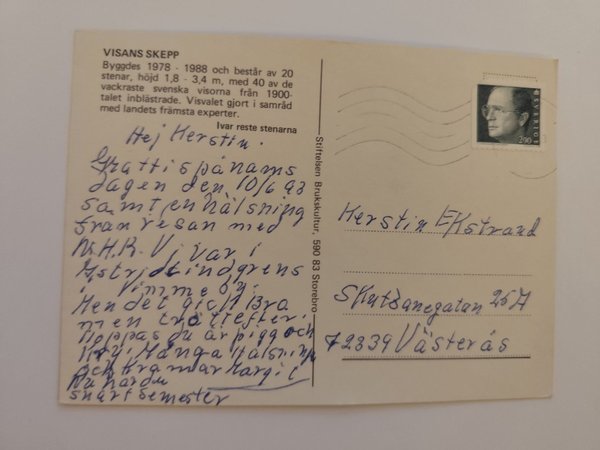 VISANS SKEPP
Byggdes 1978 - 1988 och består av 20
stenar, höjd 1,8 - 3,4 m, med 40 av de
vackraste svenska visorna från 1900-
talet inblästrade. Visvalet gjort i samråd
med landets främsta experter.
Ivar reste stenarna
Hej Kerstin.
Grattis på namns
dagen den 10/6 93
samt en hälsning
från resan med
N.H.R. Vi var i
Astrid Lindgrens
i Vimmerby.
Men det gick Bra
men trött efter.
Hoppas du är pigg och
Kry. Många Hälsning
och Kramar Margit
Nu har du
snart semester
Stiftelsen Brukskultur, 590 83 Storebro
SVERIGE
290
Kerstin Ekstrand
25A
72339 Västerås